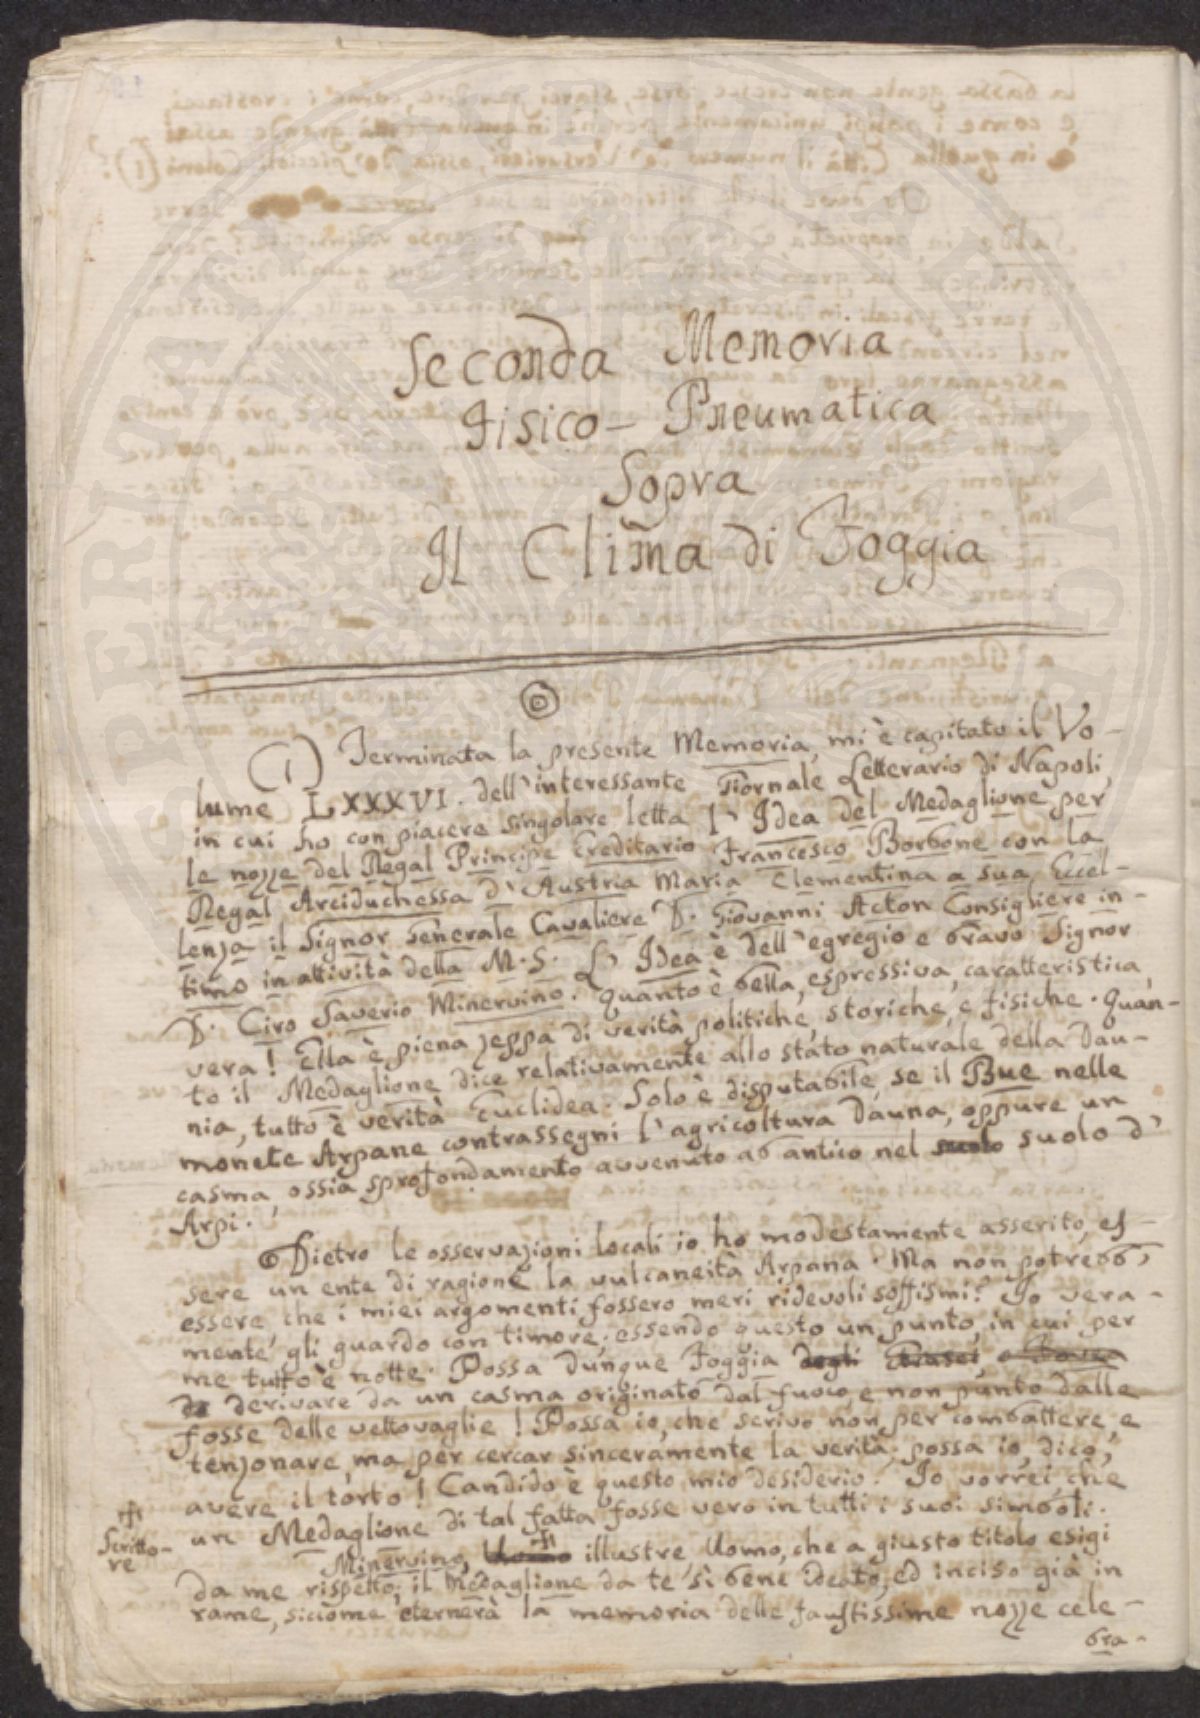 Seconda Memoria
Fisico-Pneumatica
Sopra
Il Clima di Foggia
(1) Terminata la presente Memoria, mi è capitato il Vo-
lume LXXXVI. dell'interessante Giornale Letterario di Napoli,
in cui ho con piacere singolare letta l'Idea del Medaglione per
le nozze del Regal Principe Ereditario Francesco Borbone con la
Regal Arciduchessa d'Austria Maria Clementina a sua Eccel-
lenza il Signor Generale Cavaliere D. Giovanni Acton Consigliere in-
timo in attività della M. S. L'Idea è dell'egregio e bravo Signor
D. Ciro Saverio Minervino. Quanto è bella, espressiva, caratteristica,
vera! Ella è piena zeppa di verità politiche, storiche, e fisiche. Quan-
to il Medaglione dice relativamente allo stato naturale della Dau-
nia, tutto è verità Euclidea. Solo è disputabile, se il Bue nelle
monete Arpane contrassegni l'agricoltura Dauna, oppure un
casma, ossia sprofondamento avvenuto ab antico nel suolo suolo d'
Arpi.
Dietro le osservazioni locali io ho modestamente asserito, es-
sere un ente di ragione la vulcaneità Arpana. Ma non potrebb'
essere, che i miei argomenti fossero meri ridevoli soffismi? Io vera-
mente gli guardo con timore, essendo questo un punto, in cui per
me tutto è notte. Possa dunque Foggia degli
derivare da un casma originato dal fuoco, e non punto dalle
fosse delle vettovaglie! Possa io, che scrivo non per combattere, e
tenzonare, ma per cercar sinceramente la verità, possa io, dico,
avere il torto! Candido è questo mio desiderio. Io vorrei, che
un Medaglione di tal fatta fosse vero in tutti i suoi simboli.
Scritto-
re
Minervino, Uomo illustre, Uomo, che a giusto titolo esigi
da me rispetto, il Medaglione da te sì bene ideato, ed inciso già in
rame, siccome eternerà la memoria delle faustissime nozze cele-
bra-